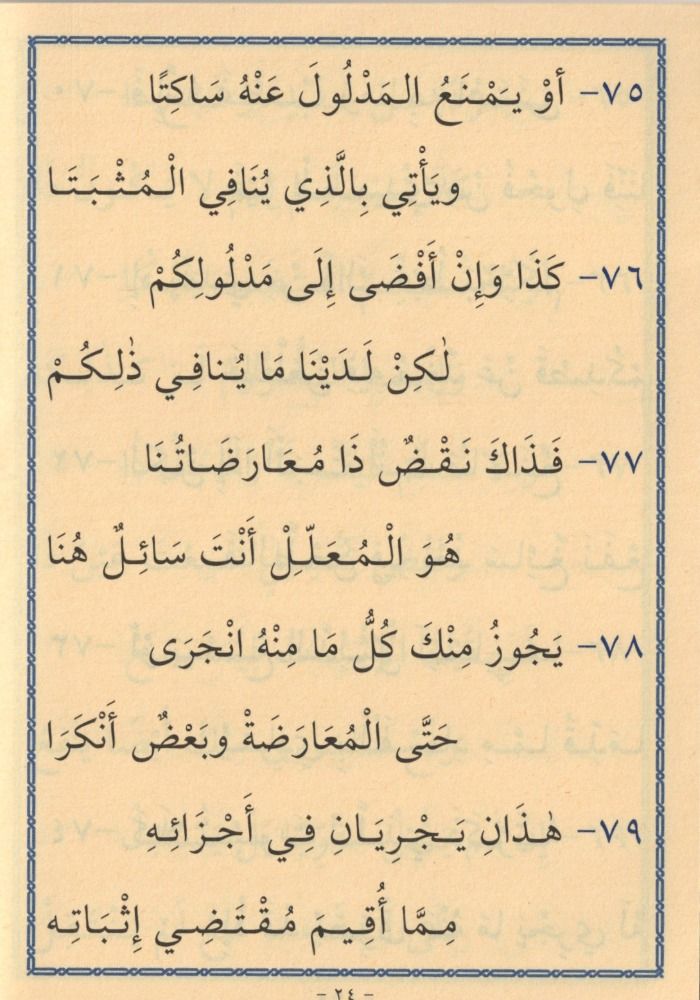 ٧٥- أوْ يَمْنَعُ المَدْلُولَ عَنْهُ سَاكِتًا
ويَأْتِي بِالَّذِي يُنَافِي الْمُثْبَتَا
٧٦- كَذَا وَإِنْ أَفْضَى إِلَى مَدْلُولِكُمْ
لٰكِنْ لَدَيْنَا مَا يُنافِي ذٰلِكُمْ
٧٧- فَذَاكَ نَقْضٌ ذَا مُعَارَضَاتُنَا
هُوَ الْمُعَلّلِْ أَنْتَ سَائِلٌ هُنَا
٧٨- يَجُوزُ مِنْكَ كُلُّ مَا مِنْهُ انْجَرَى
حَتَّى الْمُعَارَضَةْ وبَعْضٌ أَنْكَرَا
٧٩- هٰذَانِ يَجْرِيَانِ فِي أَجْزَائِهِ
مِمَّا أُقِيمَ مُقْتَضِي إِثْبَاتِه
- ٢٤ -